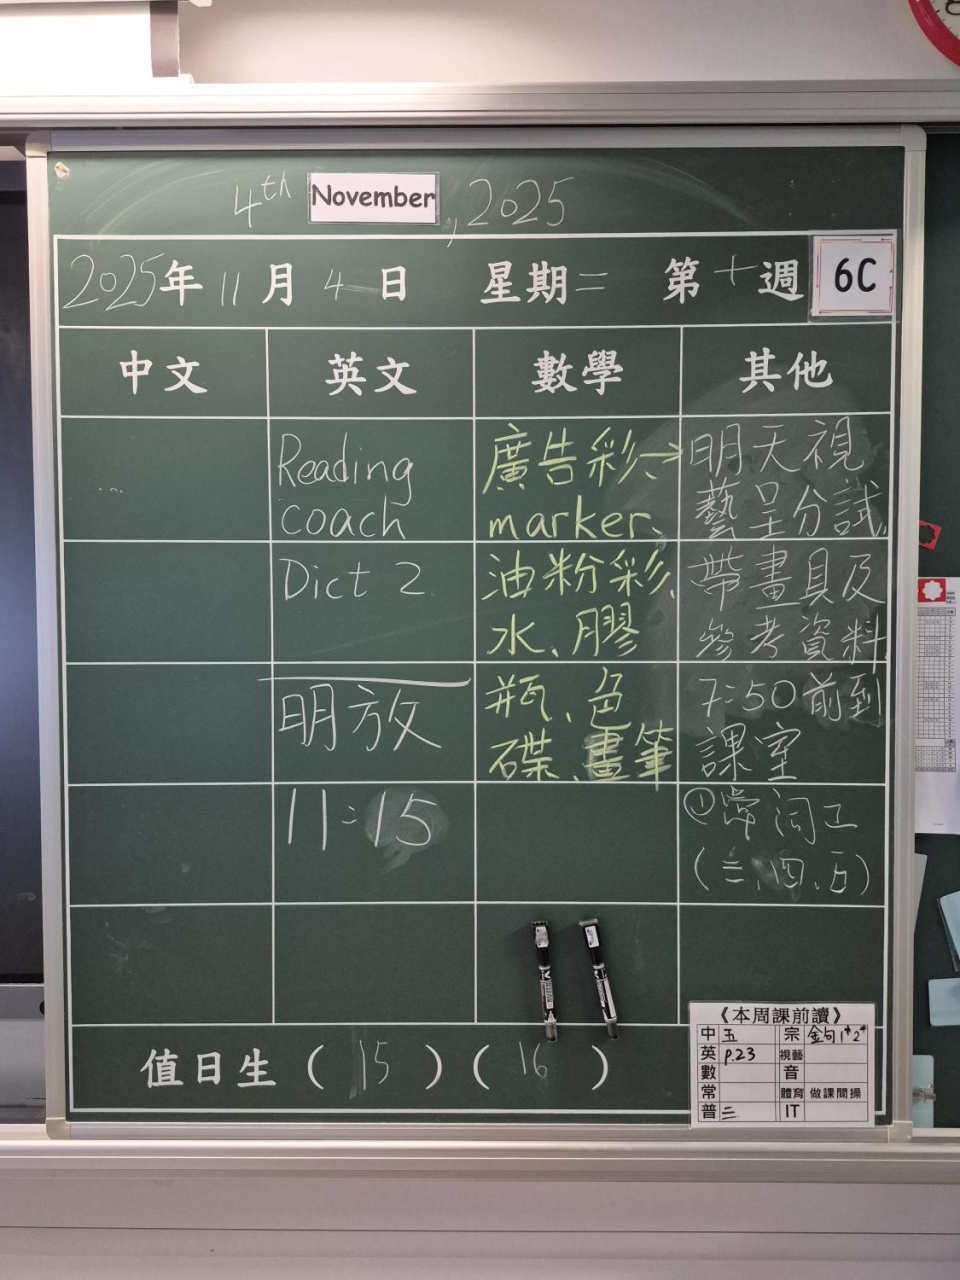 4th November, 2025
2025年 11月 4日 星期二 第十週 6C
中文 英文 數學 其他
Reading
coach
Dict 2
明放
11:15
廣告彩→
marker、
油粉彩、
水、膠
瓶、色
碟、畫筆
明天視
藝呈分試
帶畫具及
參考資料
7:50前到
課室
①
(三、四、五)
值日生 ( 15 ) ( 16 )
《本周課前讀》
中 五 宗 金句1*2*
英 p.23 視藝
數 音
常 體育 做課間操
普 三 IT